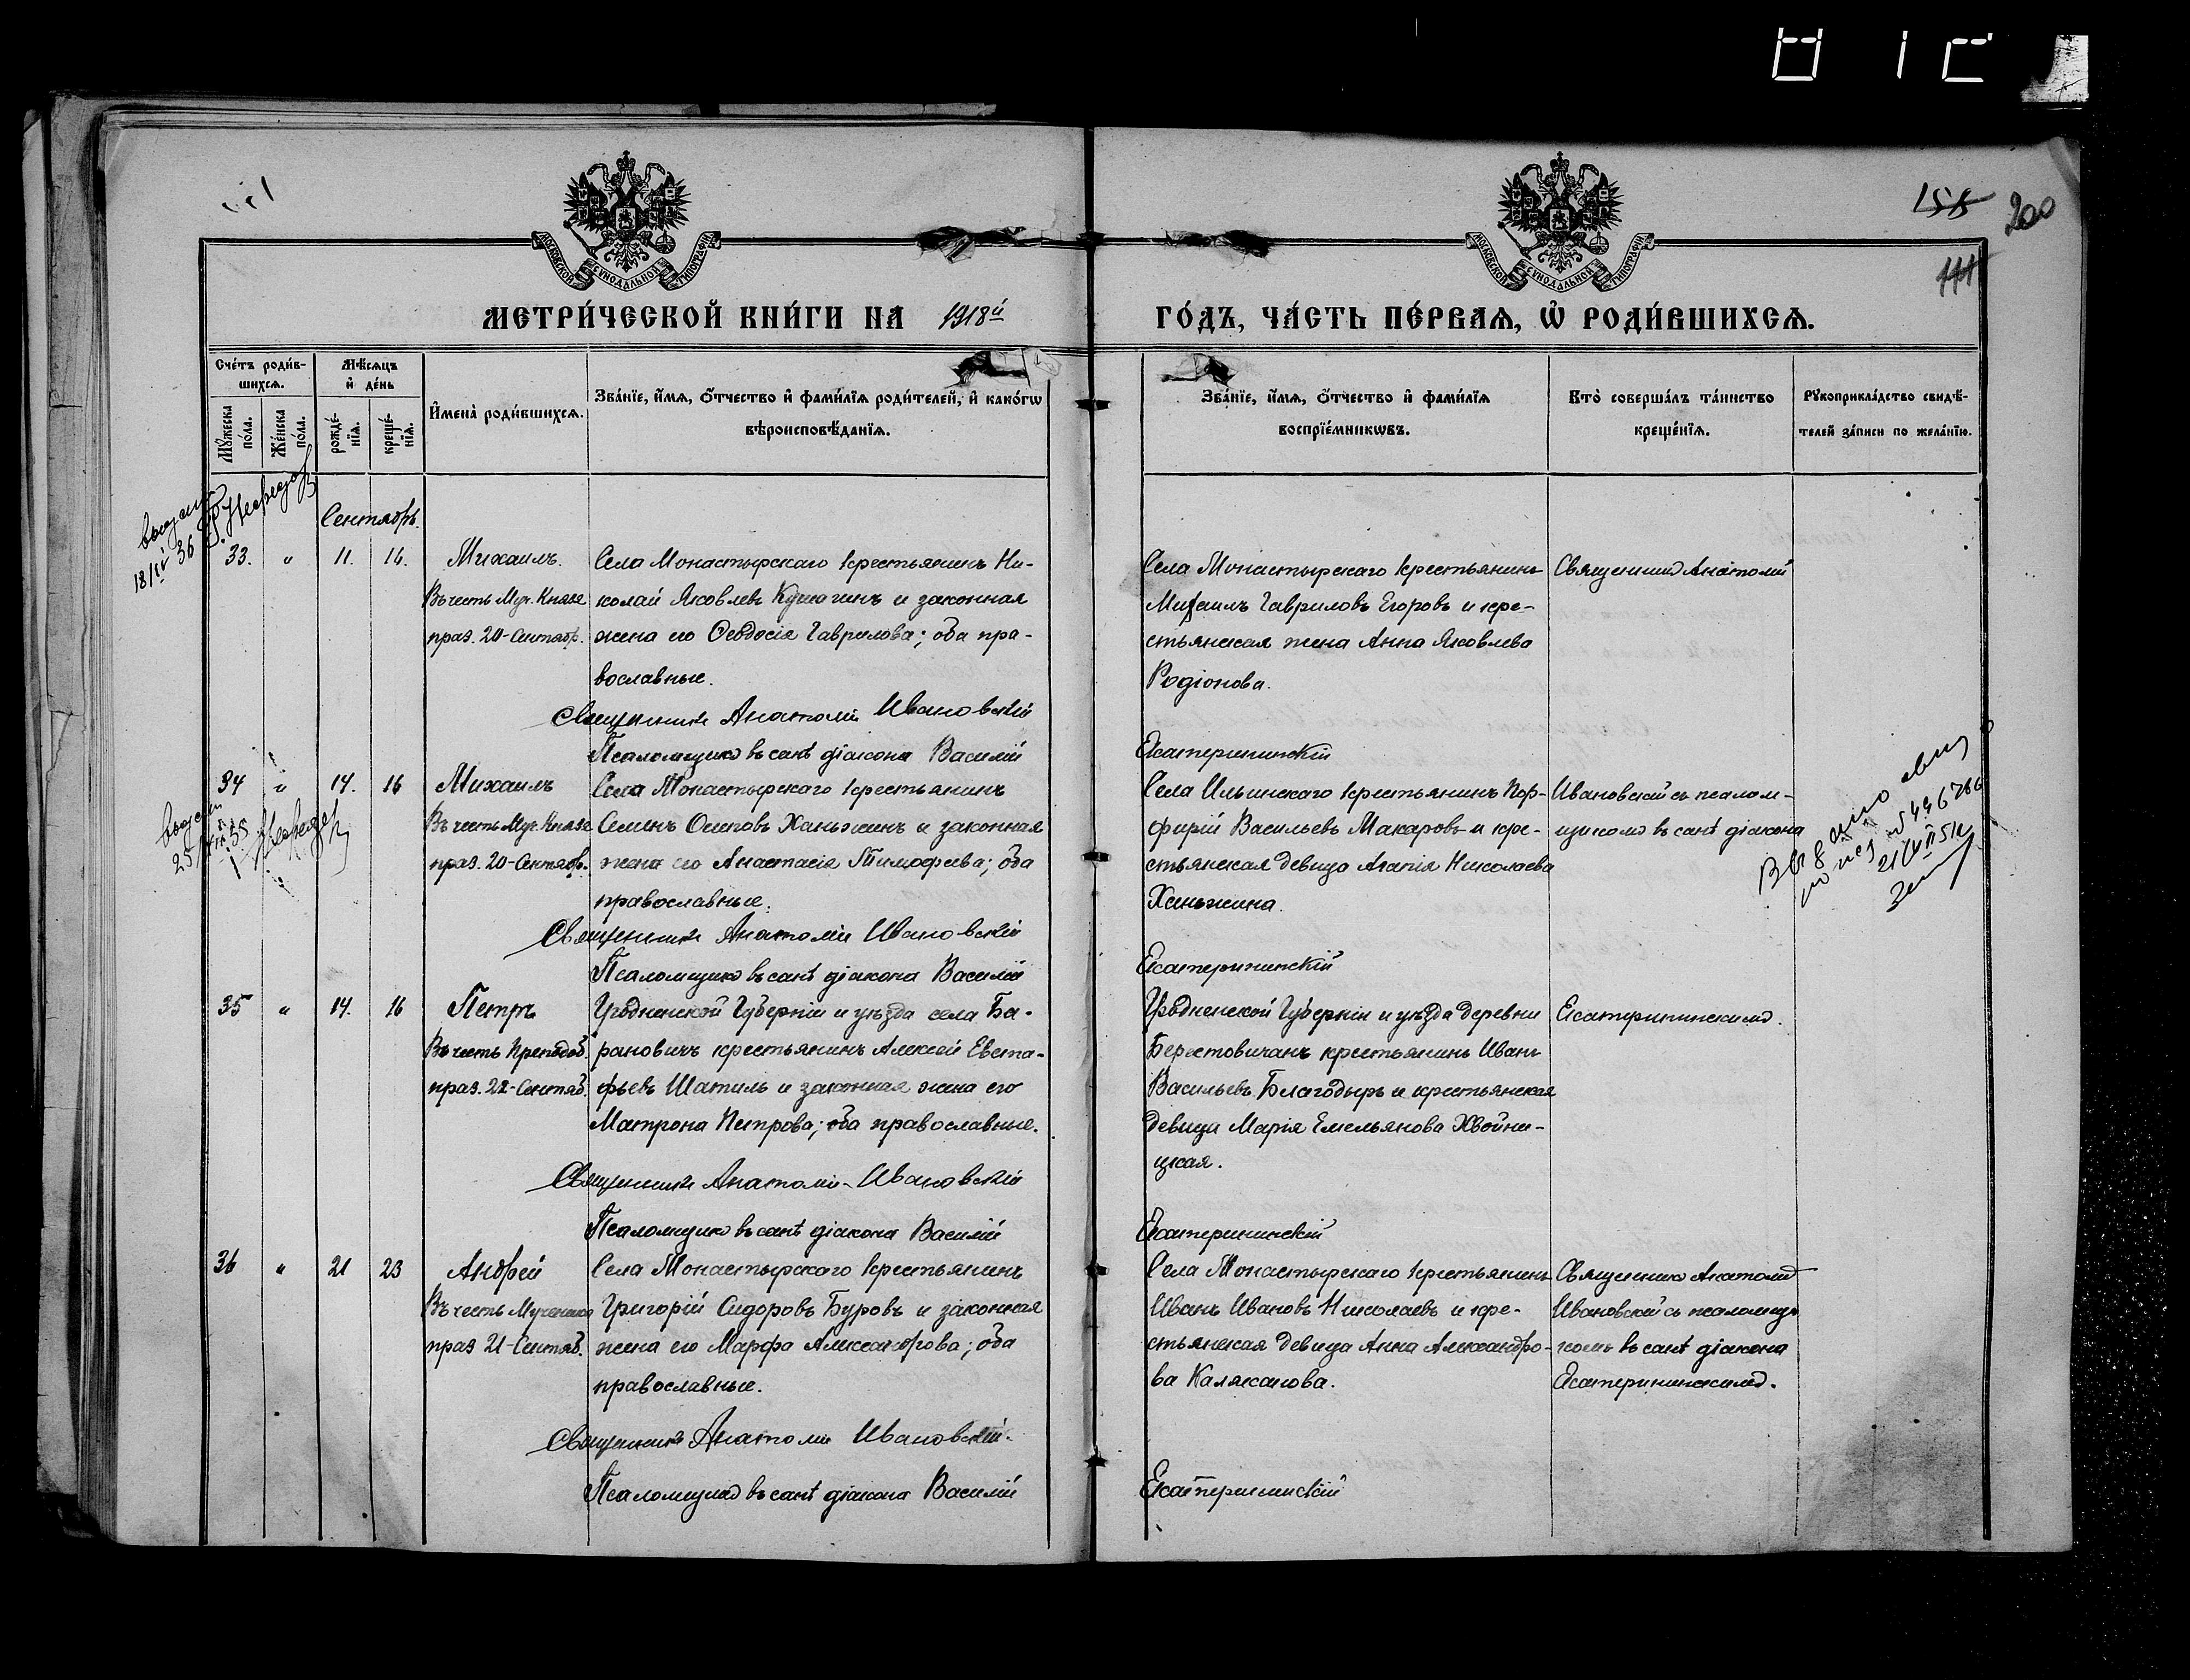 200
МОСКОВСКОЙ СУНОДАЛЬНОЙ ТИПОГРАФІИ
МОСКОВСКОЙ СУНОДАЛЬНОЙ ТИПОГРАФІИ
МЕТРИ́ЧЕСКОЙ КНИ́ГИ НА 1918й ГО́ДЪ, ЧА́СТЬ ПЕ́РВАѦ, Ѡ҆ РОДИ́ВШИХСѦ.
Сче́тъ роди́в-
шихсѧ.
Мꙋжеска по́ла.
Же́нска по́ла.
Мѣ́сѧцъ
и҆ де́нь
рожде́-
нїѧ.
креще́-
нїѧ.
И҆мена̀ роди́вшихсѧ.
Зва́нїе, и҆́мѧ, ѻ҆́тчество и҆ фами́лїѧ роди́телей, и҆ како́гѡ
вѣроисповѣ́данїѧ.
Зва́нїе, и҆́мѧ, ѻ҆́тчество и҆ фами́лїѧ
воспрїе́мникѡвъ.
Кто̀ соверша́лъ та́инство
креще́нїѧ.
Рꙋкоприкла́дство свидѣ́-
телей за́писи по жела́нїю.
Сентябрь.
33. " 11. 14.
Михаилъ.
Въ честь Муч. Князя
праз. 20-Сентябр.
Села Монастырскаго крестьянинъ Ни-
колай Яковлевъ Кулагинъ и законная
жена его Ѳеодосія Гаврилова; оба пра-
вославные.
Села Монастырскаго крестьянинъ
Михаилъ Гавриловъ Егоровъ и кре-
стьянская жена Анна Яковлева
Родіонова.
Священникъ Анатолій
Священникъ Анатолій Ивановскій
Псаломщикъ въ санѣ діакона Василій Екатерининскій
34 " 14. 16
Михаилъ
Въ честь Муч. Князя
праз. 20-Сентябр.
Села Монастырскаго крестьянинъ
Семенъ Осиповъ Ханыжинъ и законная
жена его Анастасія Тимофеева; оба
православные.
Села Ильинскаго крестьянинъ Пор-
фирій Васильевъ Макаровъ и кре-
стьянская девица Агапія Николаева
Ханыжина.
Ивановскій съ псалом-
щикомъ въ санѣ діакона
Выдано
Священникъ Анатолій Ивановскій
Псаломщикъ въ санѣ діакона Василій Екатерининскій
35 " 14. 16
Петръ
Въ честь Преподоб.
праз. 22-Сентяб.
Гродненской Губерніи и уѣзда села Ба-
рановичъ крестьянинъ Алексѣй Евста-
фьевъ Шатиль и законная жена его
Матрона Петрова; оба православные.
Гродненской Губерніи и уѣзда деревни
Берестовичанъ крестьянинъ Иванъ
Васильевъ Благодыръ и крестьянская
девица Марія Емельянова Хвойни-
цкая.
Екатерининскимъ.
Священникъ Анатолій Ивановскій
Псаломщикъ въ санѣ діакона Василій Екатерининскій
36 " 21 23
Андрей
Въ честь Мученика
праз 21-Сентяб.
Села Монастырскаго крестьянинъ
Григорій Сидоровъ Буровъ и законная
жена его Марфа Александрова; оба
православные.
Села Монастырскаго крестьянинъ
Иванъ Ивановъ Николаевъ и кре-
стьянская девица Анна Александро-
ва Каляканова.
Священникъ Анатолій
Ивановскій съ псаломщи
комъ въ санѣ діакона
Екатерининскимъ.
Священникъ Анатолій Ивановскій.
Псаломщикъ въ санѣ діакона Василій Екатерининскій